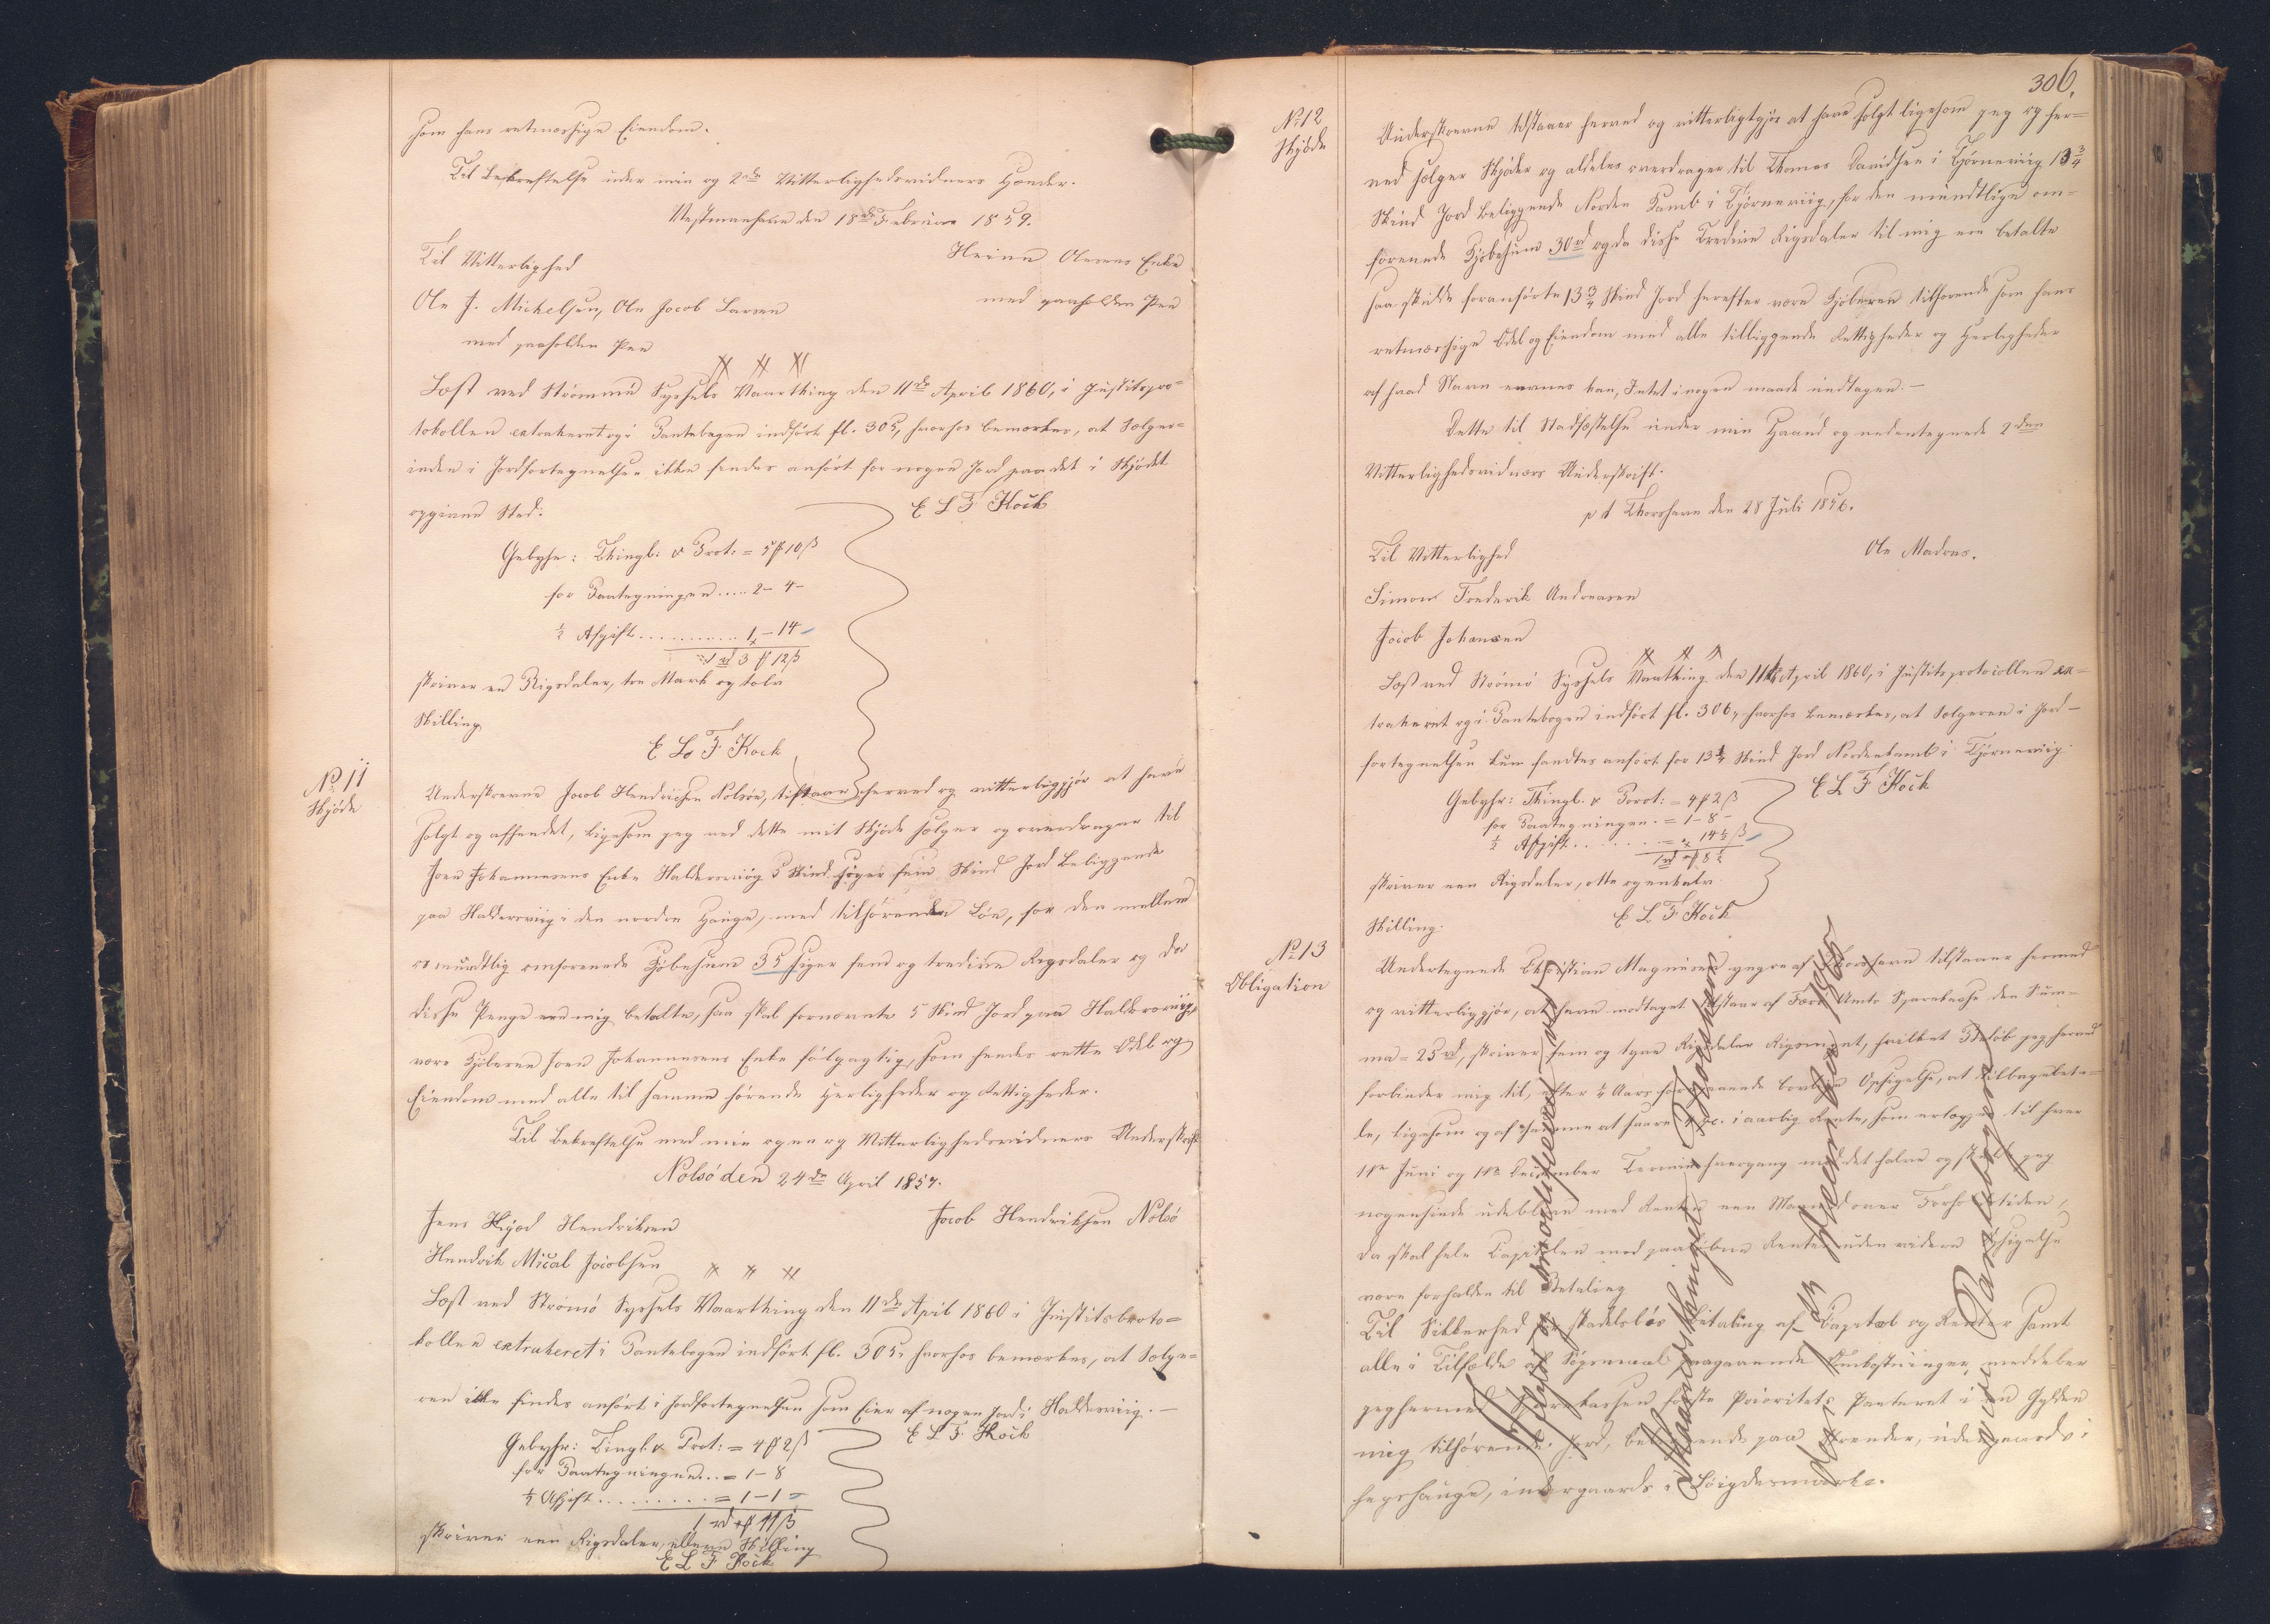 som hans retmæssige Eiendom.
Til Bekræftelse under min og 2de Vitterlighedsvidners Hænder.
Vestmanhavn den 18de Februar 1859.
Til Vitterlighed
Heinne Olesens Enke
Ole J. Michelsen, Ole Jacob Larsen
med paaholden Pen
med paaholden Pen
Læst ved Strømmø Syssels Vaarthing den 11de April 1860, i Justitspro=
tokollen extraheret og i Pantebogen indført fl. 305, hvorhos bemærkes, at Sælger=
inden i Jordfortegnelsen ikke findes anført for nogen Jord paa det i Skjødet
opgivne Sted.
E L F Kock
Gebyhr: Thingl. & Prot: = 5 ₻ 10 ß
for Paategningen ..... 2 - 4 -
½ Afgift .......... 1 - 14 -
1 rd 3 ₻ 12 ß
skriver en Rigsdaler, tre Mark og tolv
Skilling
E L F Kock
No 11
Skjøde
Underskrevne Jacob Hendrichsen Nolsøe, tilstaaer herved og vitterliggjør at have
solgt og afhendet, ligesom jeg ved dette mit Skjøde sælger og overdrager til
Joen Johannesens Enke Haldersviig 5 Skind siger fem Skind Jord beliggende
paa Haldersviig i den nordre Hauge, med tilhørende Løn, for den mellem
os mundtlig omforenede Kjøbesum 35 siger fem og tredive Rigsdaler og da
disse Penge ere mig betalte, saa skal fornævnte 5 Skind Jord paa Haldersviig
være Kjøberen Joen Johannesens Enke følgagtig, som hendes rette Odel og
Eiendom med alle til samme hørende Herligheder og Rettigheder.
Til Bekræftelse med min egen og Vitterlighedsvidners Underskrift
Nolsø den 24de April 1857.
Jens Hendriksen
Jacob Hendriksen Nolsø
Hendrik Mical Jacobsen
Læst ved Strømø Syssels Vaarthing den 11de April 1860 i Justitsproto=
kollen extraheret i Pantebogen indført fl. 305, hvorhos bemærkes, at Sælge=
ren ikke findes anført i Jordfortegnelsen som Eier af nogen Jord i Haldersviig. -
E L F Kock
Gebyhr: Tingl. & Prot: = 4 ₻ 2 ß
for Paategningen .. = 1 - 8
½ Afgift ......... = 1 - 1 -
1 rd ₻ 11 ß
skriver een Rigsdaler, elleve Skilling
E L F Kock
306.
No 12
Skjøde
Underskrevne tilstaaer herved og vitterligtgjør at have solgt ligesom jeg og her=
ved sælger Skjøder og aldeles overdrager til Thomas Davidsen i Tjørneviig 13¾
Skind Jord beliggende Norden Kamb i Tjørneviig, for den mundtlige om=
forenede Kjøbesum 30 rd og da disse Tredive Rigsdaler til mig ere betalte
saa skulde foranførte 13¾ Skind Jord herefter være Kjøberen tilhørende som hans
retmæssige Odel og Eiendom med alle tilliggende Rettigheder og Herligheder
af hvad Navn nævnes kan, Intet i nogen maade undtagen. -
Dette til Stadfæstelse under min Haand og nedentegnede 2den
Vitterlighedsvidners Underskrift.
p t Thorshavn den 28 Juli 1856.
Til Vitterlighed
Ole Madras.
Simon Frederik Andreasen
Jacob Johansen
Læst ved Strömö Syssels Vaarthing den 11te April 1860, i Justitsprotocollen ex=
traheret og i Pantebogen indført fl. 306, hvorhos bemærkes, at Sælgeren i Jord-
fortegnelsen kun fandtes anført for 13¼ Skind Jord Nordenkamb i Tjørneviig.
E L F Kock
Gebyhr: Thingl. & Prot: = 4 ₻ 2 ß
for Paategningen. = 1 - 8 -
½ Afgift ....... = 14½ ß
1 rd ₻ 8½
skriver een Rigsdaler, otte og enhalv
Skilling.
E L F Kock
No 13
Obligation
Undertegnede Christian Magnusen yngre af Thorshavn tilstaaer hermed
og vitterliggjør, at have modtaget tillaans af Færø Amts Sparekasse den Sum=
ma = 25 rd, skriver fem og tyve Rigsdaler Rigsmynt, hvilket Beløb jeg herved
forbinder mig til, efter ¼ Aars foregaaende lovlig Opsigelse, at tilbagebeta=
le, ligesom og af samme at svare 4 pc. i aarlig Rente, som erlægges til hver
11te Juni og 11te December Termin hvergang med det halve og skulde jeg
nogensinde udeblive med Renten een Maaned over Forfaldstiden,
da skal hele Capitalen med paaløbne Renter uden videre Opsigelse
være forfalden til Betaling
Til Sikkerhed for skadesløs Betaling af Capital og Renter samt
alle i Tilfælde af Søgsmaal paagaaende Omkostninger, meddeler
jeg hermed Sparekassen første Prioritets Panteret i en Gylden
mig tilhørende Jord, beliggende paa Strender, udengaards i
hegshauge, indengaards i
Aflyst og mortificeret ved
Maanedsthinget i Thorshavn
den
vide Pantebogen